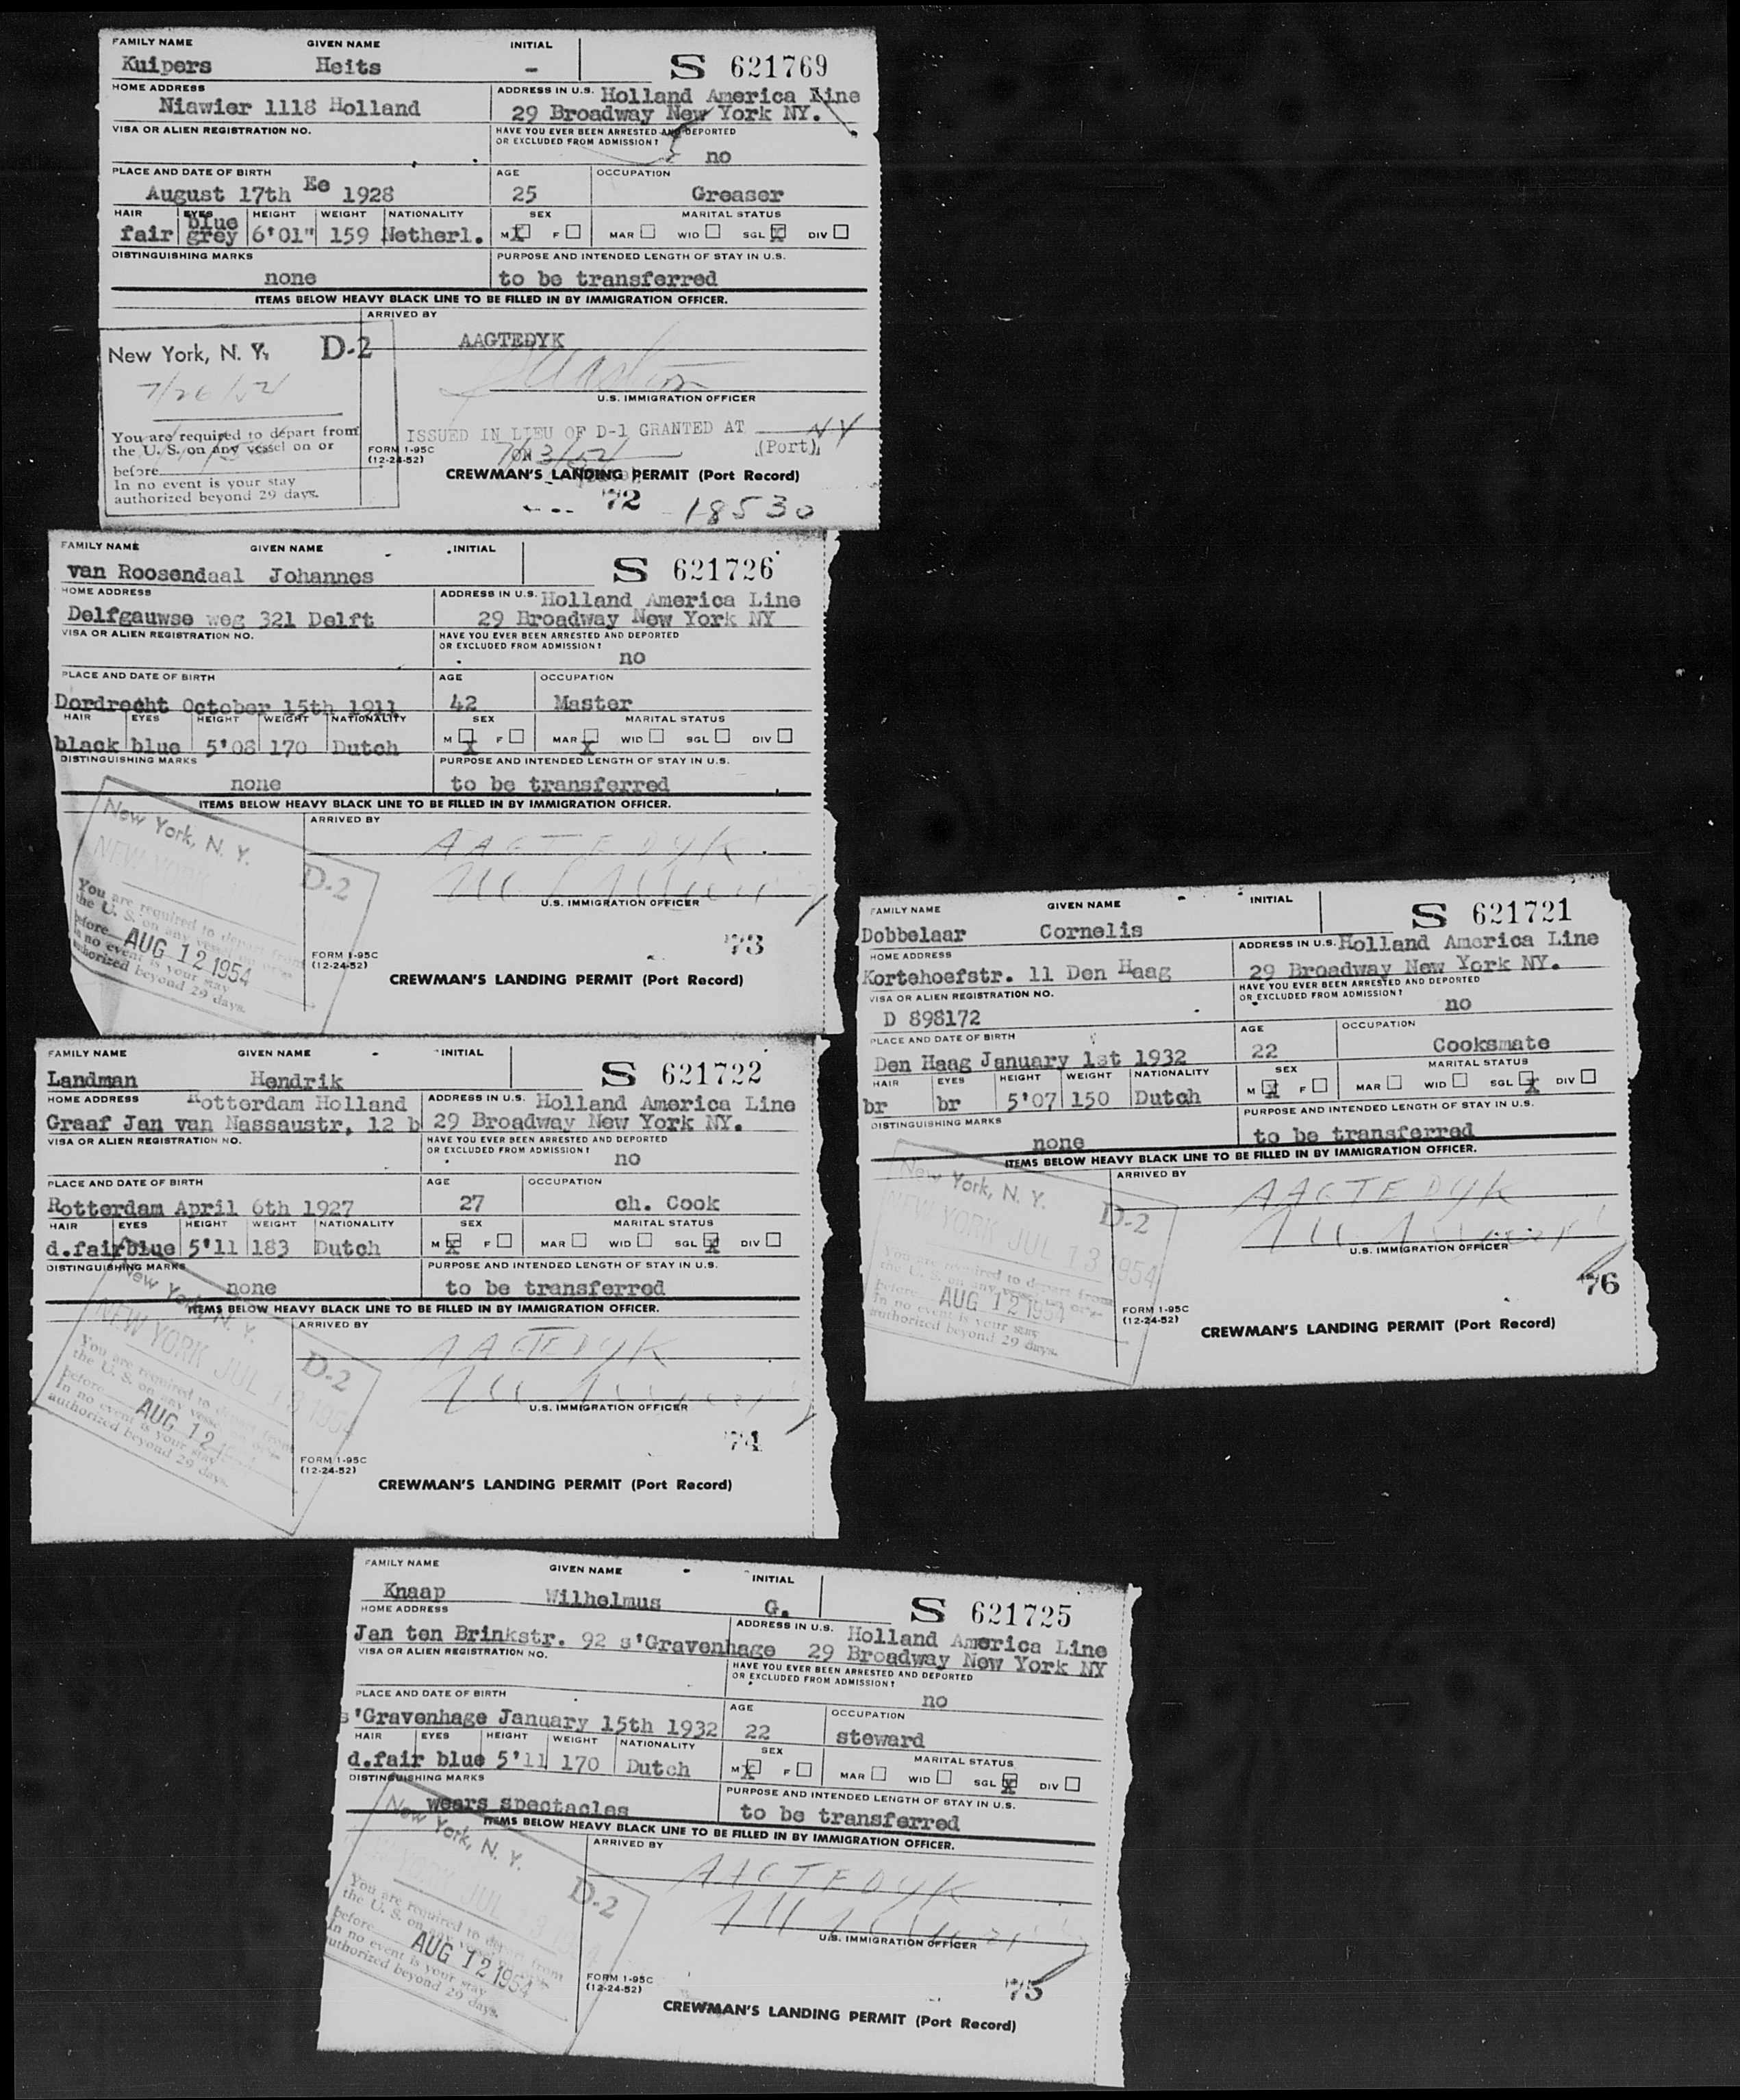 FAMILY NAME GIVEN NAME INITIAL
Kuipers Heits - S 621769
HOME ADDRESS ADDRESS IN U.S. Holland America Line
Niawier 1118 Holland 29 Broadway New York NY.
VISA OR ALIEN REGISTRATION NO. HAVE YOU EVER BEEN ARRESTED AND DEPORTED
OR EXCLUDED FROM ADMISSION?
no
PLACE AND DATE OF BIRTH AGE OCCUPATION
August 17th Ee 1928 25 Greaser
HAIR EYES HEIGHT WEIGHT NATIONALITY SEX MARITAL STATUS
blue
fair grey 6'01" 159 Netherl. M X F MAR WID SGL X DIV
DISTINGUISHING MARKS PURPOSE AND INTENDED LENGTH OF STAY IN U.S.
none to be transferred
ITEMS BELOW HEAVY BLACK LINE TO BE FILLED IN BY IMMIGRATION OFFICER.
ARRIVED BY
New York, N. Y. D-2 AAGTEDYK
7/26/52
U.S. IMMIGRATION OFFICER
You are required to depart from
the U. S. on any vessel on or
before
In no event is your stay
authorized beyond 29 days.
ISSUED IN LIEU OF D-1 GRANTED AT NY
(Port)
ON
FORM I-95C
(12-24-52)
CREWMAN'S LANDING PERMIT (Port Record)
72 18530
FAMILY NAME GIVEN NAME INITIAL
van Roosendaal Johannes S 621726
HOME ADDRESS ADDRESS IN U.S. Holland America Line
Delfgauwse weg 321 Delft 29 Broadway New York NY
VISA OR ALIEN REGISTRATION NO. HAVE YOU EVER BEEN ARRESTED AND DEPORTED
OR EXCLUDED FROM ADMISSION?
no
PLACE AND DATE OF BIRTH AGE OCCUPATION
Dordrecht October 15th 1911 42 Master
HAIR EYES HEIGHT WEIGHT NATIONALITY SEX MARITAL STATUS
black blue 5'08 170 Dutch M X F MAR X WID SGL DIV
DISTINGUISHING MARKS PURPOSE AND INTENDED LENGTH OF STAY IN U.S.
none to be transferred
ITEMS BELOW HEAVY BLACK LINE TO BE FILLED IN BY IMMIGRATION OFFICER.
ARRIVED BY
AAGTEDYK
New York, N. Y.
NEW YORK
D-2
U.S. IMMIGRATION OFFICER
You are required to depart from
the U. S. on any vessel on or
before AUG 12 1954
In no event is your stay
authorized beyond 29 days.
73
FORM I-95C
(12-24-52)
CREWMAN'S LANDING PERMIT (Port Record)
FAMILY NAME GIVEN NAME INITIAL
Landman Hendrik S 621722
HOME ADDRESS Rotterdam Holland ADDRESS IN U.S. Holland America Line
Graaf Jan van Nassaustr. 12 b 29 Broadway New York NY.
VISA OR ALIEN REGISTRATION NO. HAVE YOU EVER BEEN ARRESTED AND DEPORTED
OR EXCLUDED FROM ADMISSION?
no
PLACE AND DATE OF BIRTH AGE OCCUPATION
Rotterdam April 6th 1927 27 ch. Cook
HAIR EYES HEIGHT WEIGHT NATIONALITY SEX MARITAL STATUS
d.fair blue 5'11 183 Dutch M X F MAR WID SGL X DIV
DISTINGUISHING MARKS PURPOSE AND INTENDED LENGTH OF STAY IN U.S.
none to be transferred
ITEMS BELOW HEAVY BLACK LINE TO BE FILLED IN BY IMMIGRATION OFFICER.
ARRIVED BY
AAGTEDYK
New York, N. Y.
NEW YORK JUL 13 1954
D-2
U.S. IMMIGRATION OFFICER
You are required to depart from
the U. S. on any vessel on or
before AUG 12
In no event is your stay
authorized beyond 29 days.
74
FORM I-95C
(12-24-52)
CREWMAN'S LANDING PERMIT (Port Record)
FAMILY NAME GIVEN NAME INITIAL
Dobbelaar Cornelis S 621721
HOME ADDRESS ADDRESS IN U.S. Holland America Line
Kortehoefstr. 11 Den Haag 29 Broadway New York NY.
VISA OR ALIEN REGISTRATION NO. HAVE YOU EVER BEEN ARRESTED AND DEPORTED
OR EXCLUDED FROM ADMISSION?
D 898172 no
PLACE AND DATE OF BIRTH AGE OCCUPATION
Den Haag January 1st 1932 22 Cooksmate
HAIR EYES HEIGHT WEIGHT NATIONALITY SEX MARITAL STATUS
br br 5'07 150 Dutch M X F MAR WID SGL X DIV
DISTINGUISHING MARKS PURPOSE AND INTENDED LENGTH OF STAY IN U.S.
none to be transferred
ITEMS BELOW HEAVY BLACK LINE TO BE FILLED IN BY IMMIGRATION OFFICER.
ARRIVED BY
AAGTEDYK
New York, N. Y.
NEW YORK JUL 13 1954
D-2
U.S. IMMIGRATION OFFICER
You are required to depart from
the U. S. on any vessel on or
before AUG 12 1954
In no event is your stay
authorized beyond 29 days.
76
FORM I-95C
(12-24-52)
CREWMAN'S LANDING PERMIT (Port Record)
FAMILY NAME GIVEN NAME INITIAL
Knaap Wilhelmus G. S 621725
HOME ADDRESS ADDRESS IN U.S. Holland America Line
Jan ten Brinkstr. 92 s'Gravenhage 29 Broadway New York NY
VISA OR ALIEN REGISTRATION NO. HAVE YOU EVER BEEN ARRESTED AND DEPORTED
OR EXCLUDED FROM ADMISSION?
no
PLACE AND DATE OF BIRTH AGE OCCUPATION
s'Gravenhage January 15th 1932 22 steward
HAIR EYES HEIGHT WEIGHT NATIONALITY SEX MARITAL STATUS
d.fair blue 5'11 170 Dutch M X F MAR WID SGL X DIV
DISTINGUISHING MARKS PURPOSE AND INTENDED LENGTH OF STAY IN U.S.
wears spectacles to be transferred
ITEMS BELOW HEAVY BLACK LINE TO BE FILLED IN BY IMMIGRATION OFFICER.
ARRIVED BY
AAGTEDYK
New York, N. Y.
JUL 13
D-2
U.S. IMMIGRATION OFFICER
You are required to depart from
the U. S. on any vessel on or
before AUG 12 1954
In no event is your stay
authorized beyond 29 days.
75
FORM I-95C
(12-24-52)
CREWMAN'S LANDING PERMIT (Port Record)